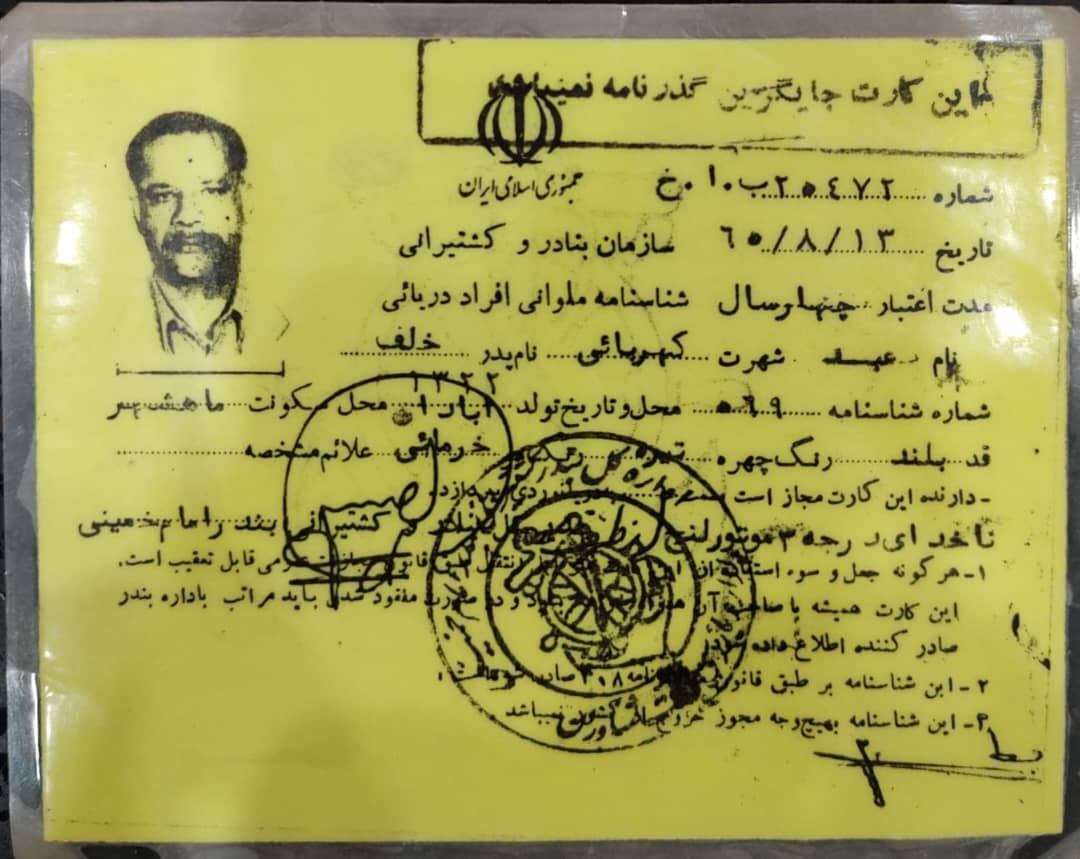 این کارت جایگزین گذرنامه نمیباشد
جمهوری اسلامی ایران
شماره ۲۵٤۷۲ ب.۱۰.خ
تاریخ ٦۰/۸/۱۳ سازمان بنادر و کشتیرانی
مدت اعتبار چهارسال شناسنامه ملوانی افراد دریائی
نام عبد شهرت کهربائی نام پدر خلف
شماره شناسنامه ۵٦۹ محل و تاریخ تولد ۱۳۲۲ محل سکونت ماهشهر
قد بلند رنگ چهره تیره خرمائی علائم مشخصه
-دارنده این کارت مجاز است
ناخدای درجه ۳ موتورلنج کشتیرانی بندر امام خمینی
۱-هرگونه جعل و سوء استفاده از قابل تعقیب است.
این کارت همیشه با صاحب آن و در صورت مفقود شدن باید مراتب باداره بندر
صادر کننده اطلاع داده شود
۲-این شناسنامه بر طبق صادر
۳-این شناسنامه بهیچوجه مجوز خروج از کشور نمیباشد